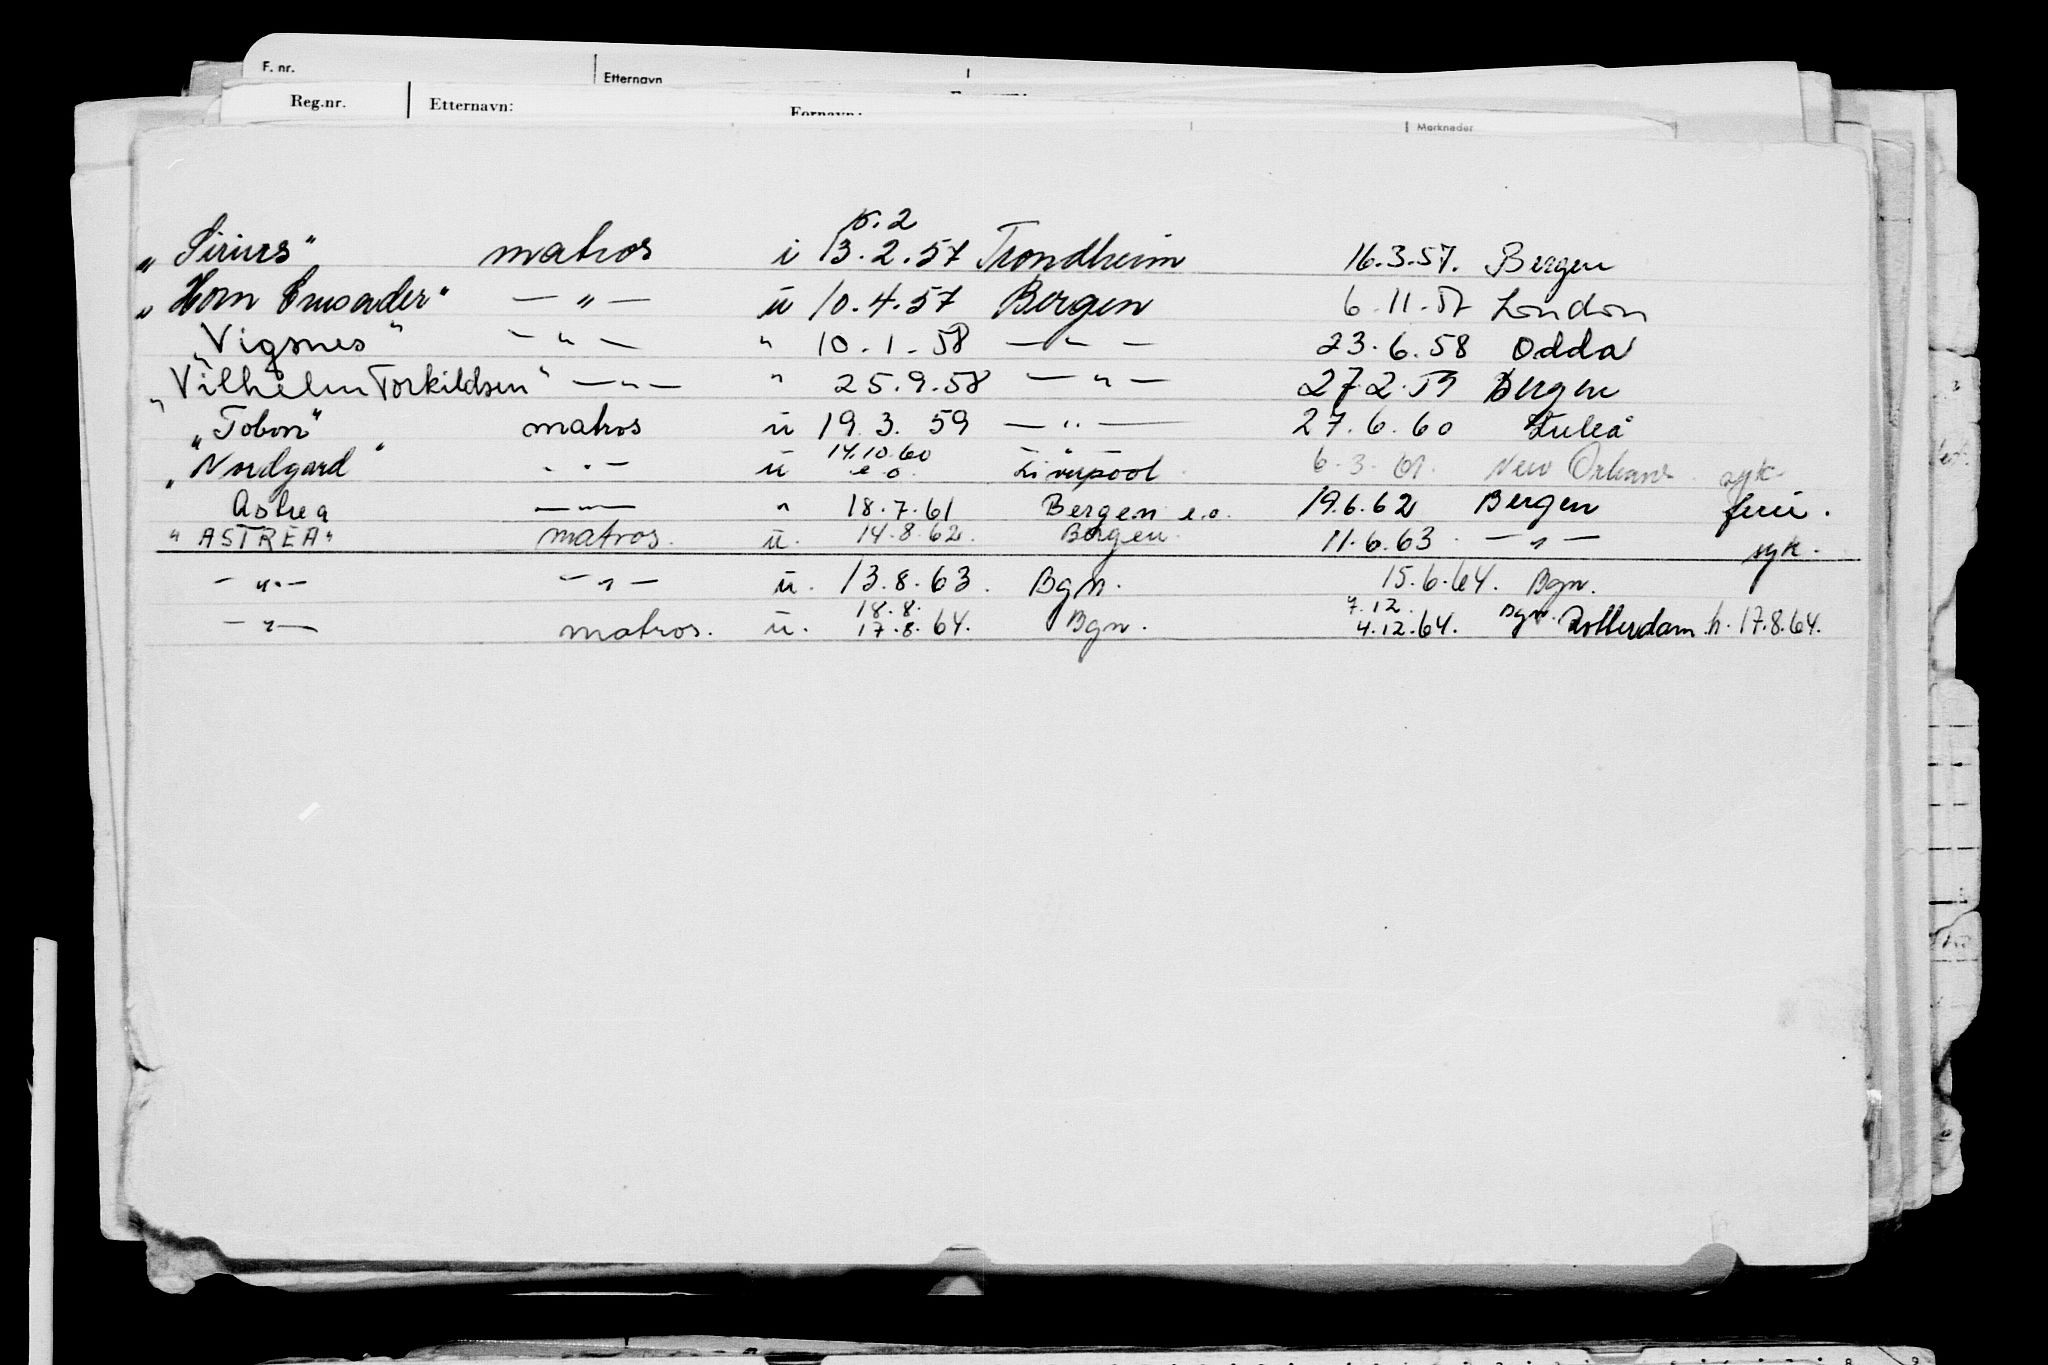 F. nr. Etternavn
Reg.nr. Etternavn: Fornavn:
Merknader
15.2
„Sirius" matros i 13.2.57 Trondheim 16.3.57. Bergen
„Horn Crusader" — " — u 10.4.57 Bergen 6.11.57 London
„Vigsnes" — " — " 10.1.58 — " — 23.6.58 Odda
„Vilhelm Torkildsen" — " — " 25.9.58 — " — 27.2.59 Bergen
„Tobon" matros u 19.3.59 — " — 27.6.60 Luleå
14.10.60
„Nordgard" — " — u e.o. Liverpool 6.3.61. New Orleans syk
Astrea — " — " 18.7.61 Bergen e.o. 19.6.62 Bergen ferie.
"ASTREA" matros. u. 14.8.62. Bergen. 11.6.63. — " — syk.
— " — — " — u. 13.8.63. Bgn. 15.6.64. Bgn.
18.8. 7.12. Bgn.
— " — matros. u. 17.8.64. Bgn. 4.12.64. Rotterdam h. 17.8.64.